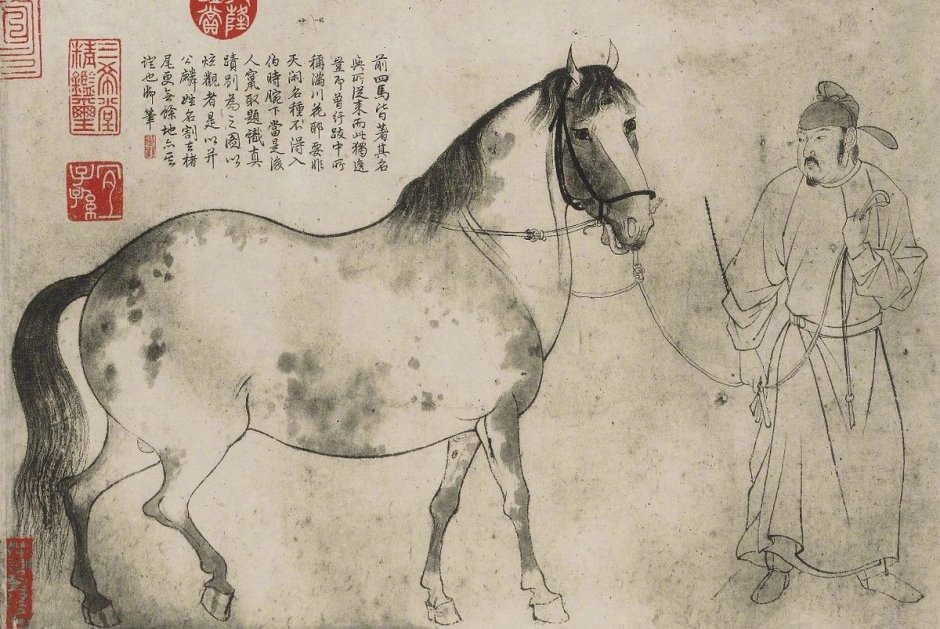 前四馬皆著其名
與所從來而此獨逸
豈即曾紆跋中所
稱滿川花耶要非
天閑名種不得入
伯時腕下當是後
人竄取題識真
蹟別為之圖以
炫觀者是以并
公麟姓名割去楮
尾更無餘地亦左
證也御筆
三希堂
精鑑璽
宜
子孫